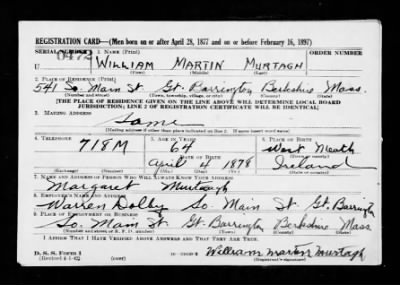 REGISTRATION CARD—(Men born on or after April 28, 1877 and on or before February 16, 1897)
SERIAL NUMBER 1. NAME (Print) ORDER NUMBER
U 0472 WILLIAM MARTIN MURTAGH
(First) (Middle) (Last)
2. PLACE OF RESIDENCE (Print)
541 So. Main St. Gt. Barrington Berkshire Mass.
(Number and street) (Town, township, village, or city) (County) (State)
[THE PLACE OF RESIDENCE GIVEN ON THE LINE ABOVE WILL DETERMINE LOCAL BOARD
JURISDICTION; LINE 2 OF REGISTRATION CERTIFICATE WILL BE IDENTICAL]
3. MAILING ADDRESS
Same
[Mailing address if other than place indicated on line 2. If same insert word same]
4. TELEPHONE 5. AGE IN YEARS 6. PLACE OF BIRTH
718 M 64 West Meath
DATE OF BIRTH (Town or county)
April 4 1878 Ireland
(Exchange) (Number) (Mo.) (Day) (Yr.) (State or country)
7. NAME AND ADDRESS OF PERSON WHO WILL ALWAYS KNOW YOUR ADDRESS
Margaret Murtagh
8. EMPLOYER'S NAME AND ADDRESS
Warren Dolby So. Main St Gt. Barrington
9. PLACE OF EMPLOYMENT OR BUSINESS
So. Main St Gt. Barrington Berkshire Mass
(Number and street or R. F. D. number) (Town) (County) (State)
I AFFIRM THAT I HAVE VERIFIED ABOVE ANSWERS AND THAT THEY ARE TRUE.
D. S. S. Form 1 William Martin Murtagh
(Registrant's signature)